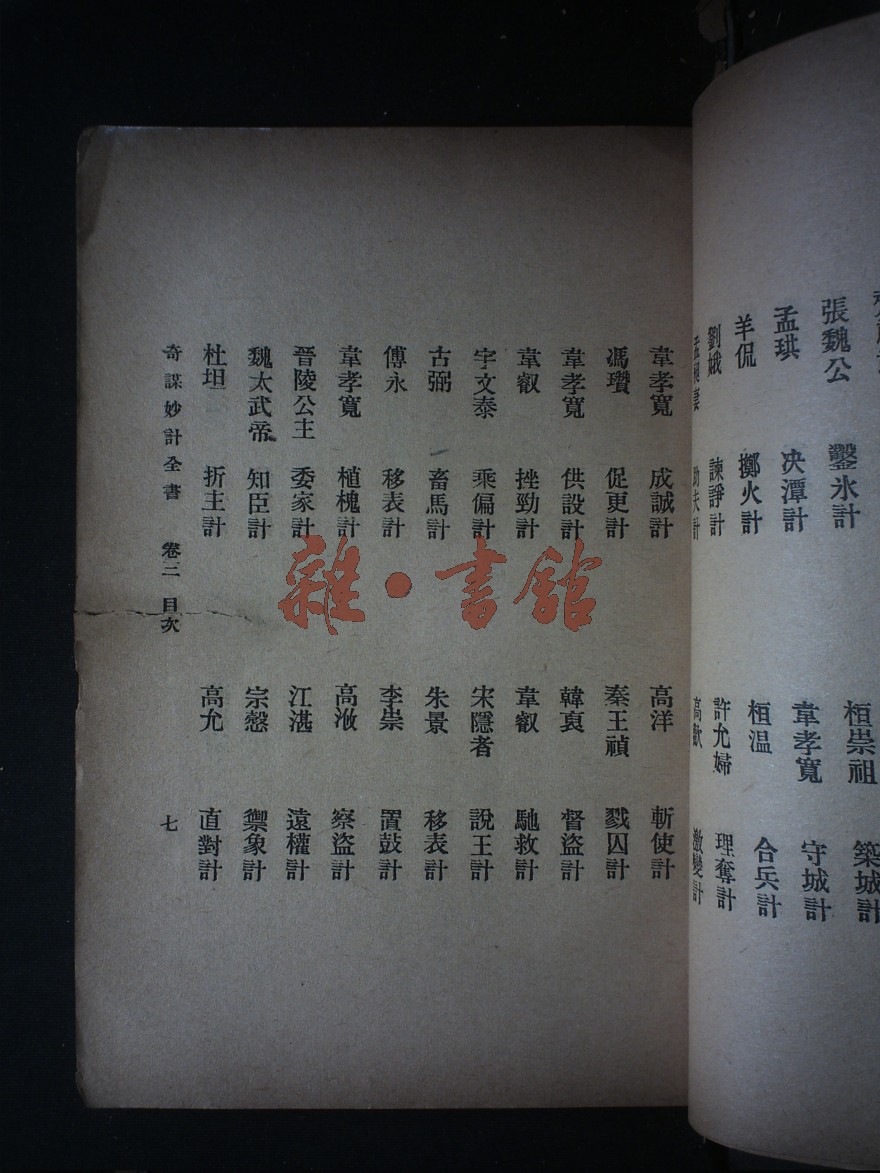 張魏公　鑿氷計
韋孝寬　守城計
孟珙　決潭計
桓温　合兵計
羊侃　擲火計
許允婦　理奪計
劉娥　諫諍計
韋孝寬　成誠計
高洋　斬使計
馮瓚　促更計
秦王禎　戮囚計
韋孝寬　供設計
韓裒　督盜計
韋叡　挫勁計
韋叡　馳救計
宇文泰　乘偏計
宋隱者　說王計
古弼　畜馬計
朱景　移表計
傅永　移表計
李崇　置鼓計
韋孝寬　植槐計
高浟　察盜計
晉陵公主　委家計
江湛　遠權計
魏太武帝　知臣計
宗慤　禦象計
杜坦　折主計
高允　直對計
奇謀妙計全書　卷三　目次　七
雜·書館